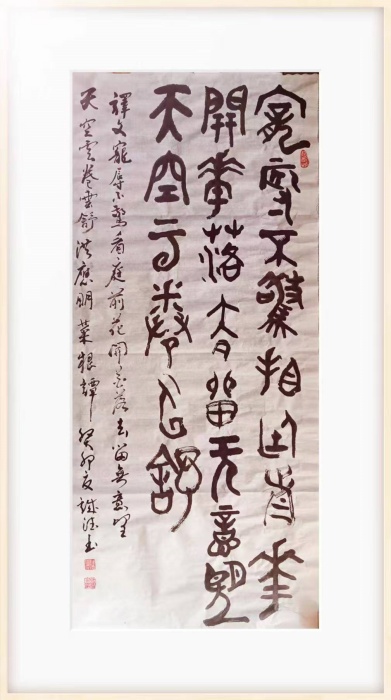 寵辱不驚相庭前華
開華落去留无意望
天空云卷云舒
譯文寵辱不驚看庭前花開花落去留無意望
天空雲卷雲舒洪應明菜根譚癸卯夏书